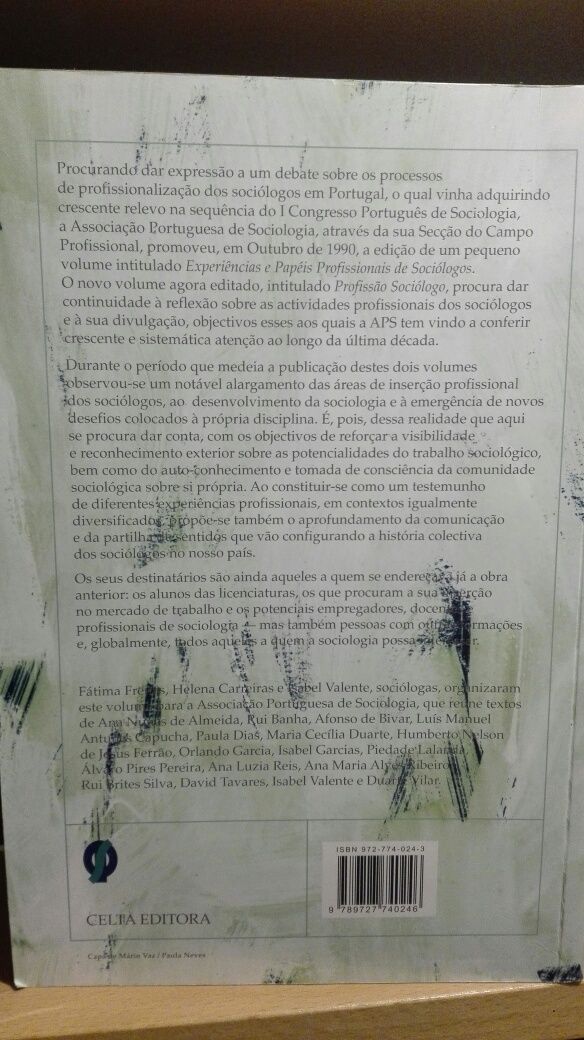 Procurando dar expressão a um debate sobre os processos
de profissionalização dos sociólogos em Portugal, o qual vinha adquirindo
crescente relevo na sequência do I Congresso Português de Sociologia,
a Associação Portuguesa de Sociologia, através da sua Secção do Campo
Profissional, promoveu, em Outubro de 1990, a edição de um pequeno
volume intitulado Experiências e Papéis Profissionais de Sociólogos.
O novo volume agora editado, intitulado Profissão Sociólogo, procura dar
continuidade à reflexão sobre as actividades profissionais dos sociólogos
e à sua divulgação, objectivos esses aos quais a APS tem vindo a conferir
crescente e sistemática atenção ao longo da última década.
Durante o período que medeia a publicação destes dois volumes
observou-se um notável alargamento das áreas de inserção profissional
dos sociólogos, ao desenvolvimento da sociologia e à emergência de novos
desafios colocados à própria disciplina. É, pois, dessa realidade que aqui
se procura dar conta, com os objectivos de reforçar a visibilidade
e reconhecimento exterior sobre as potencialidades do trabalho sociológico,
bem como do auto-conhecimento e tomada de consciência da comunidade
sociológica sobre si própria. Ao constituir-se como um testemunho
de diferentes experiências profissionais, em contextos igualmente
diversificados, propõe-se também o aprofundamento da comunicação
e da partilha de sentidos que vão configurando a história colectiva
dos sociólogos no nosso país.
Os seus destinatários são ainda aqueles a quem se endereçava já a obra
anterior: os alunos das licenciaturas, os que procuram a sua inserção
no mercado de trabalho e os potenciais empregadores, docentes
profissionais de sociologia — mas também pessoas com outras formações
e, globalmente, todos aqueles a quem a sociologia possa interessar.
Fátima Freitas, Helena Carreiras e Isabel Valente, sociólogas, organizaram
este volume para a Associação Portuguesa de Sociologia, que reúne textos
de Ana Nunes de Almeida, Rui Banha, Afonso de Bivar, Luís Manuel
Antunes Capucha, Paula Dias, Maria Cecília Duarte, Humberto Nelson
de Jesus Ferrão, Orlando Garcia, Isabel Garcias, Piedade Lalanda,
Álvaro Pires Pereira, Ana Luzia Reis, Ana Maria Alves Ribeiro,
Rui Brites Silva, David Tavares, Isabel Valente e Duarte Vilar.
CELTA EDITORA
ISBN 972-774-024-3
9 789727 740246
Capa de Mário Vaz / Paula Neves